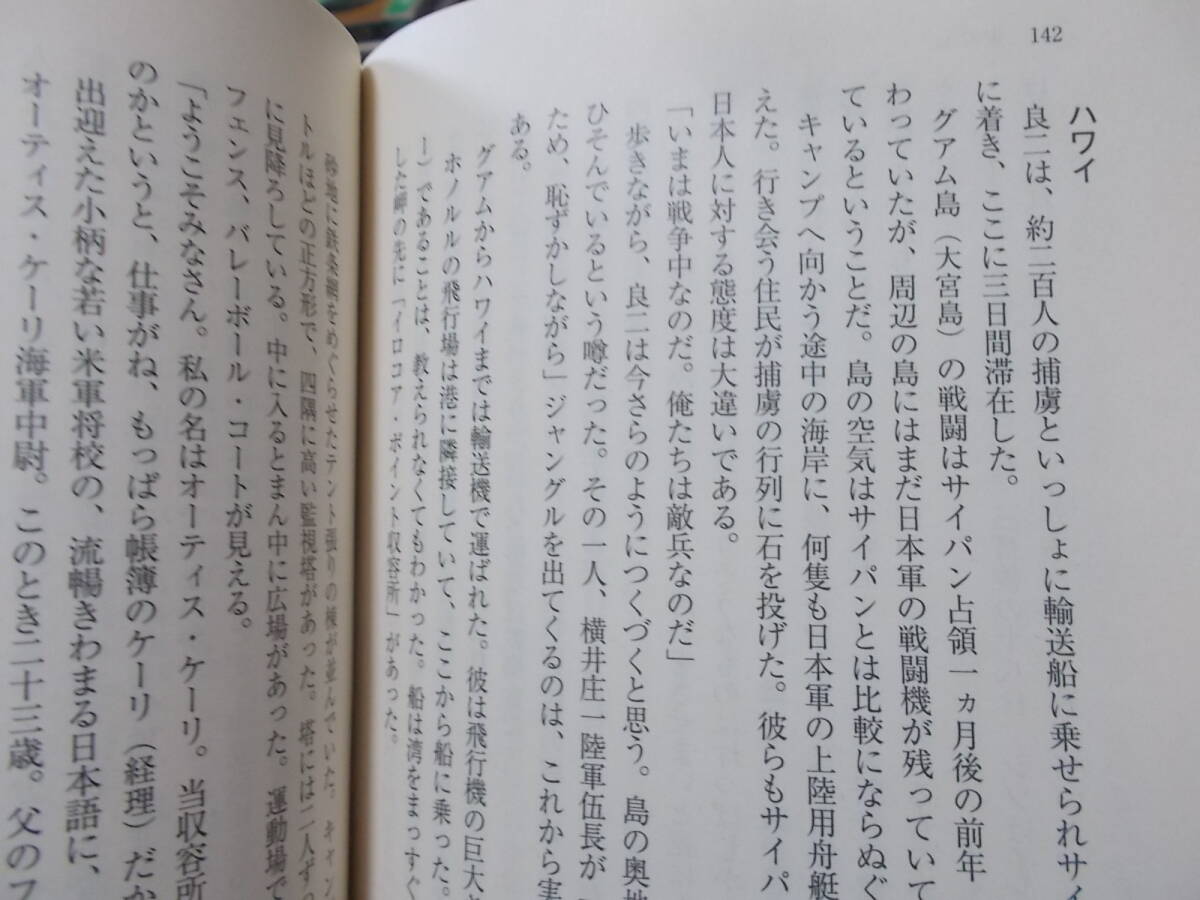 142
ハワイ
良二は、約二百人の捕虜といっしょに輸送船に乗せられサイ
に着き、ここに三日間滞在した。
グアム島（大宮島）の戦闘はサイパン占領一ヵ月後の前年
わっていたが、周辺の島にはまだ日本軍の戦闘機が残っていて
ているということだ。島の空気はサイパンとは比較にならぬぐ
キャンプへ向かう途中の海岸に、何隻も日本軍の上陸用舟艇
えた。行き会う住民が捕虜の行列に石を投げた。彼らもサイパ
日本人に対する態度は大違いである。
「いまは戦争中なのだ。俺たちは敵兵なのだ」
歩きながら、良二は今さらのようにつくづくと思う。島の奥地
ひそんでいるという噂だった。その一人、横井庄一陸軍伍長が
ため、恥ずかしながら」ジャングルを出てくるのは、これから実
ある。
グアムからハワイまでは輸送機で運ばれた。彼は飛行機の巨大
ホノルルの飛行場は港に隣接していて、ここから船に乗った。
ー）であることは、教えられなくてもわかった。船は湾をまっすぐ
した岬の先に「イロコア・ポイント収容所」があった。
砂地に鉄条網をめぐらせたテント張りの棟が並んでいた。キャン
トルほどの正方形で、四隅に高い監視塔があった。塔には二人ずつ
に見降ろしている。中に入るとまん中に広場があった。運動場で
フェンス、バレーボール・コートが見える。
「ようこそみなさん。私の名はオーティス・ケーリ。当収容所
のかというと、仕事がね、もっぱら帳簿のケーリ（経理）だか
出迎えた小柄な若い米軍将校の、流暢きわまる日本語に、
オーティス・ケーリ海軍中尉。このとき二十三歳。父のフ